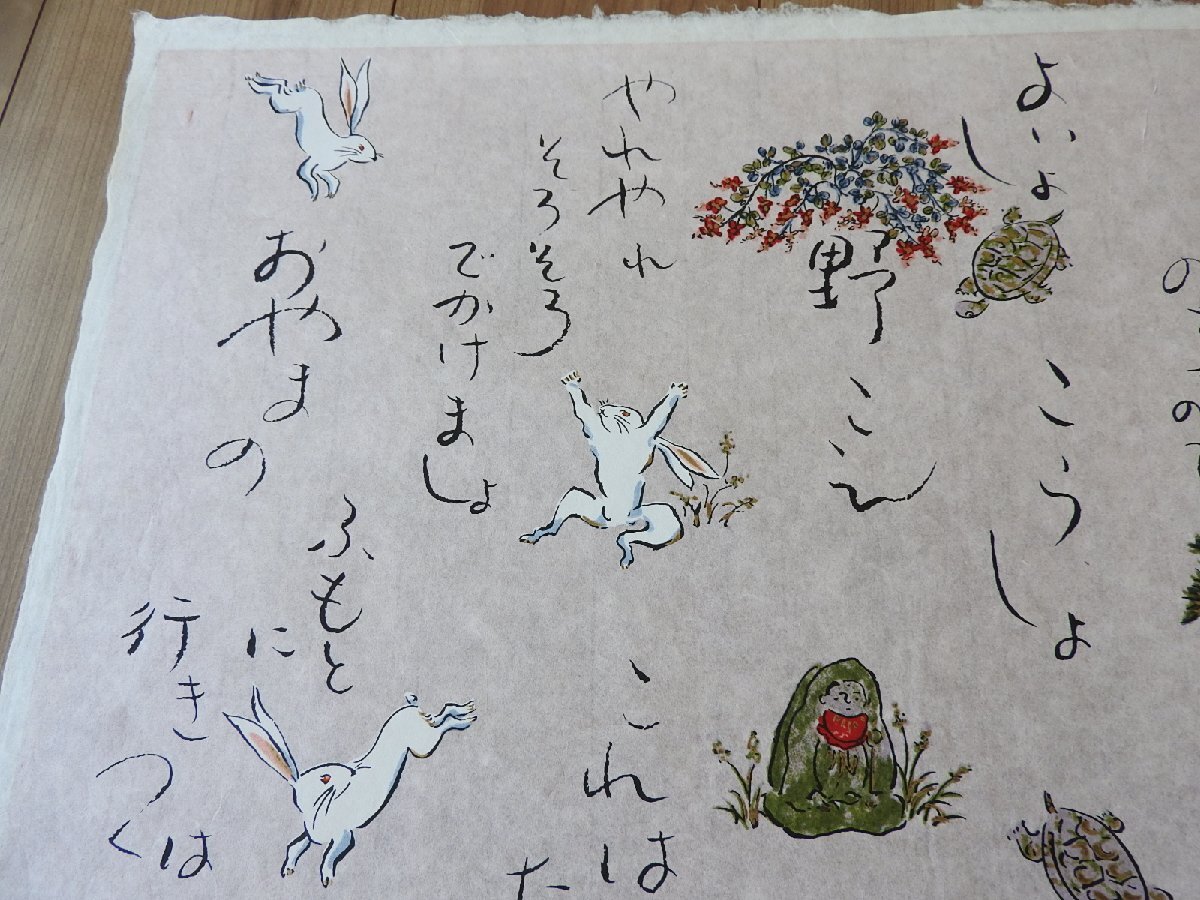 よいしょ
こうしょ
野こえ
やれやれ
そろそろ
でかけましょ
これは
た
おやまの
ふもとに
行き
つくは